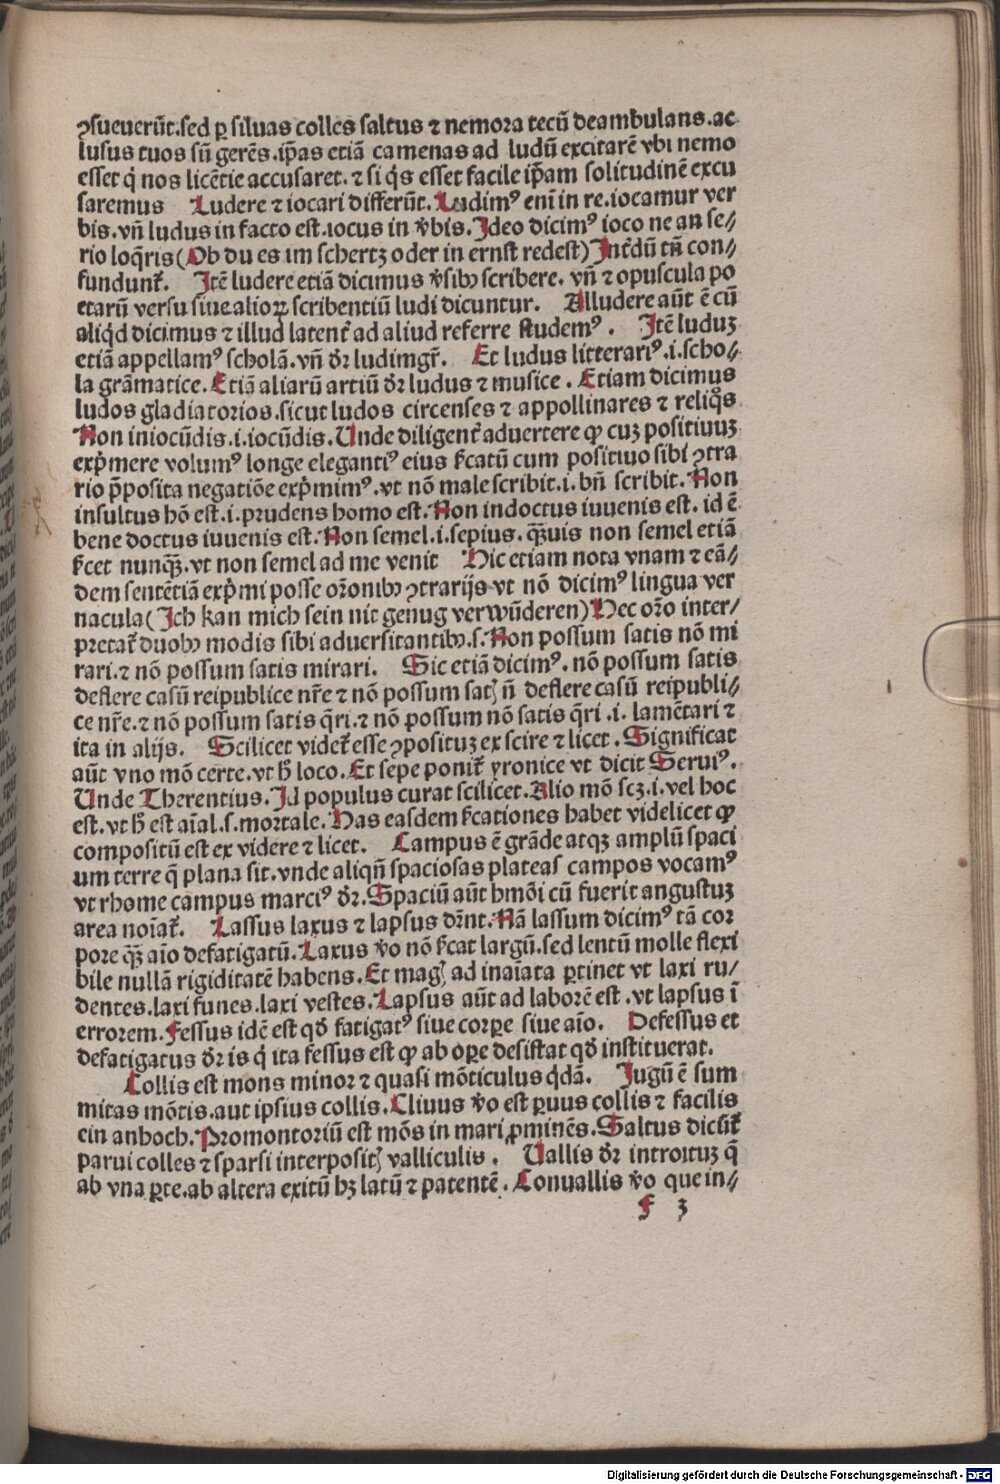 ꝯsueuerūt.sed ꝑ siluas colles saltus ⁊ nemora tecū deambulans.ac
lusus tuos sū gerēs.ip̄as etiā camenas ad ludū excitarē vbi nemo
esset q̇ nos licētie accusaret.⁊ si q̇s esset facile ip̄am solitudinē excu
saremus Ludere ⁊ iocari differūt.Ludimꝰ eni in re.iocamur ver
bis.vn̄ ludus in facto est.iocus in v̄bis.Ideo dicimꝰ ioco ne an se⸗
rio loq̄ris(Ob du es im schertz oder in ernst redest)Int̄dū tn̄ con⸗
fundunt᷑. Itē ludere etiā dicimus v̄sibꝫ scribere. vn̄ ⁊ opuscula po
etarū versu siue alioꝝ scribentiū ludi dicuntur. Alludere aūt ē cū
aliq̇d dicimus ⁊ illud latent᷑ ad aliud referre studemꝰ. Itē luduꝫ
etiā appellamꝰ scholā.vn̄ dr̄ ludimgr̄. Et ludus litterariꝰ.i.scho⸗
la grāmatice.Etiā aliarū artiū dr̄ ludus ⁊ musice. Etiam dicimus
ludos gladiatorios.sicut ludos circenses ⁊ appollinares ⁊ reliq̊s
Non iniocūdis.i.iocūdis.Unde diligent᷑ aduertere ꝙ cuꝫ positiuuꝫ
exp̄mere volumꝰ longe elegantiꝰ eius s̄catū cum positiuo sibi ꝯtra
rio p̄posita negatiōe exp̄mimꝰ.vt nō male scribit.i. bn̄ scribit. Non
insultus hō est.i.prudens homo est.Non indoctus iuuenis est. id ē
bene doctus iuuenis est.Non semel.i.sepius. qꝫuis non semel etiā
s̄cet nunqꝫ.vt non semel ad me venit Hic etiam nota vnam ⁊ eā⸗
dem sentētiā exp̄mi posse or̄onibꝫ ꝯtrarijs vt nō dicimꝰ lingua ver
nacula(Ich kan mich sein nit genug verwūderen)Hec or̄o inter⸗
pretat᷑ duobꝫ modis sibi aduersitantibꝫ.s.Non possum satis nō mi
rari.⁊ nō possum satis mirari. Sic etiā dicimꝰ. nō possum satis
deflere casū reipublice nr̄e ⁊ nō possum satꝭ n̄ deflere casū reipubli⸗
ce nr̄e.⁊ nō possum satis q̄ri.⁊ nō possum nō satis q̄ri .i. lamētari ⁊
ita in alijs. Scilicet videt᷑ esse ꝯposituꝫ ex scire ⁊ licet. Significat
aūt vno mō certe.vt h̄ loco. Et sepe ponit᷑ yronice vt dicit Seruiꝰ.
Unde Therentius.Id populus curat scilicet.Alio mō scꝫ.i.vel hoc
est.vt h̄ est aīal.s.mortale.Has easdem s̄cationes habet videlicet ꝙ
compositū est ex videre ⁊ licet. Campus ē grāde atqꝫ amplū spaci
um terre q̄ plana sit.vnde aliqn̄ spaciosas plateas campos vocamꝰ
vt rhome campus marciꝰ dr̄.Spaciū aūt hmōi cū fuerit angustuꝫ
area noīat᷑. Lassus laxus ⁊ lapsus dr̄nt.Nā lassum dicimꝰ tā cor
pore qꝫ aīo defatigatū.Laxus v̄o nō s̄cat largū.sed lentū molle flexi
bile nullā rigiditatē habens.Et magꝭ ad inaīata ꝑtinet vt laxi ru⸗
dentes.laxi funes.laxi vestes.Lapsus aūt ad laborē est .vt lapsus ī
errorem.Fessus idē est qd̄ fatigatꝰ siue corꝑe siue aīo. Defessus et
defatigatus dr̄ is q̇ ita fessus est ꝙ ab oꝑe desistat qd̄ instituerat.
Collis est mons minor ⁊ quasi mōticulus q̇dā. Iugū ē sum
mitas mōtis.aut ipsius collis.Cliuus v̄o est ꝑuus collis ⁊ facilis
ein anboch.Promontoriū est mōs in mari ꝓminēs.Saltus dicūt᷑
parui colles ⁊ sparsi interpositꝭ valliculis. Uallis dr̄ introituꝫ q̄
ab vna ꝑte.ab altera exitū hꝫ latū ⁊ patentē.Conuallis v̄o que in⸗
f 3
Digitalisierung gefördert durch die Deutsche Forschungsgemeinschaft - DFG